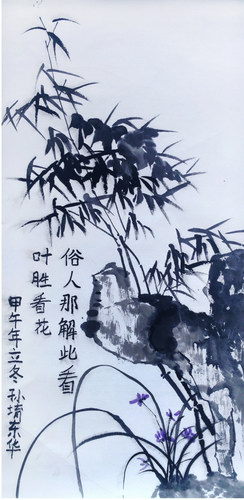 俗人那解此看
叶胜看花
甲午年立冬孙靖东华